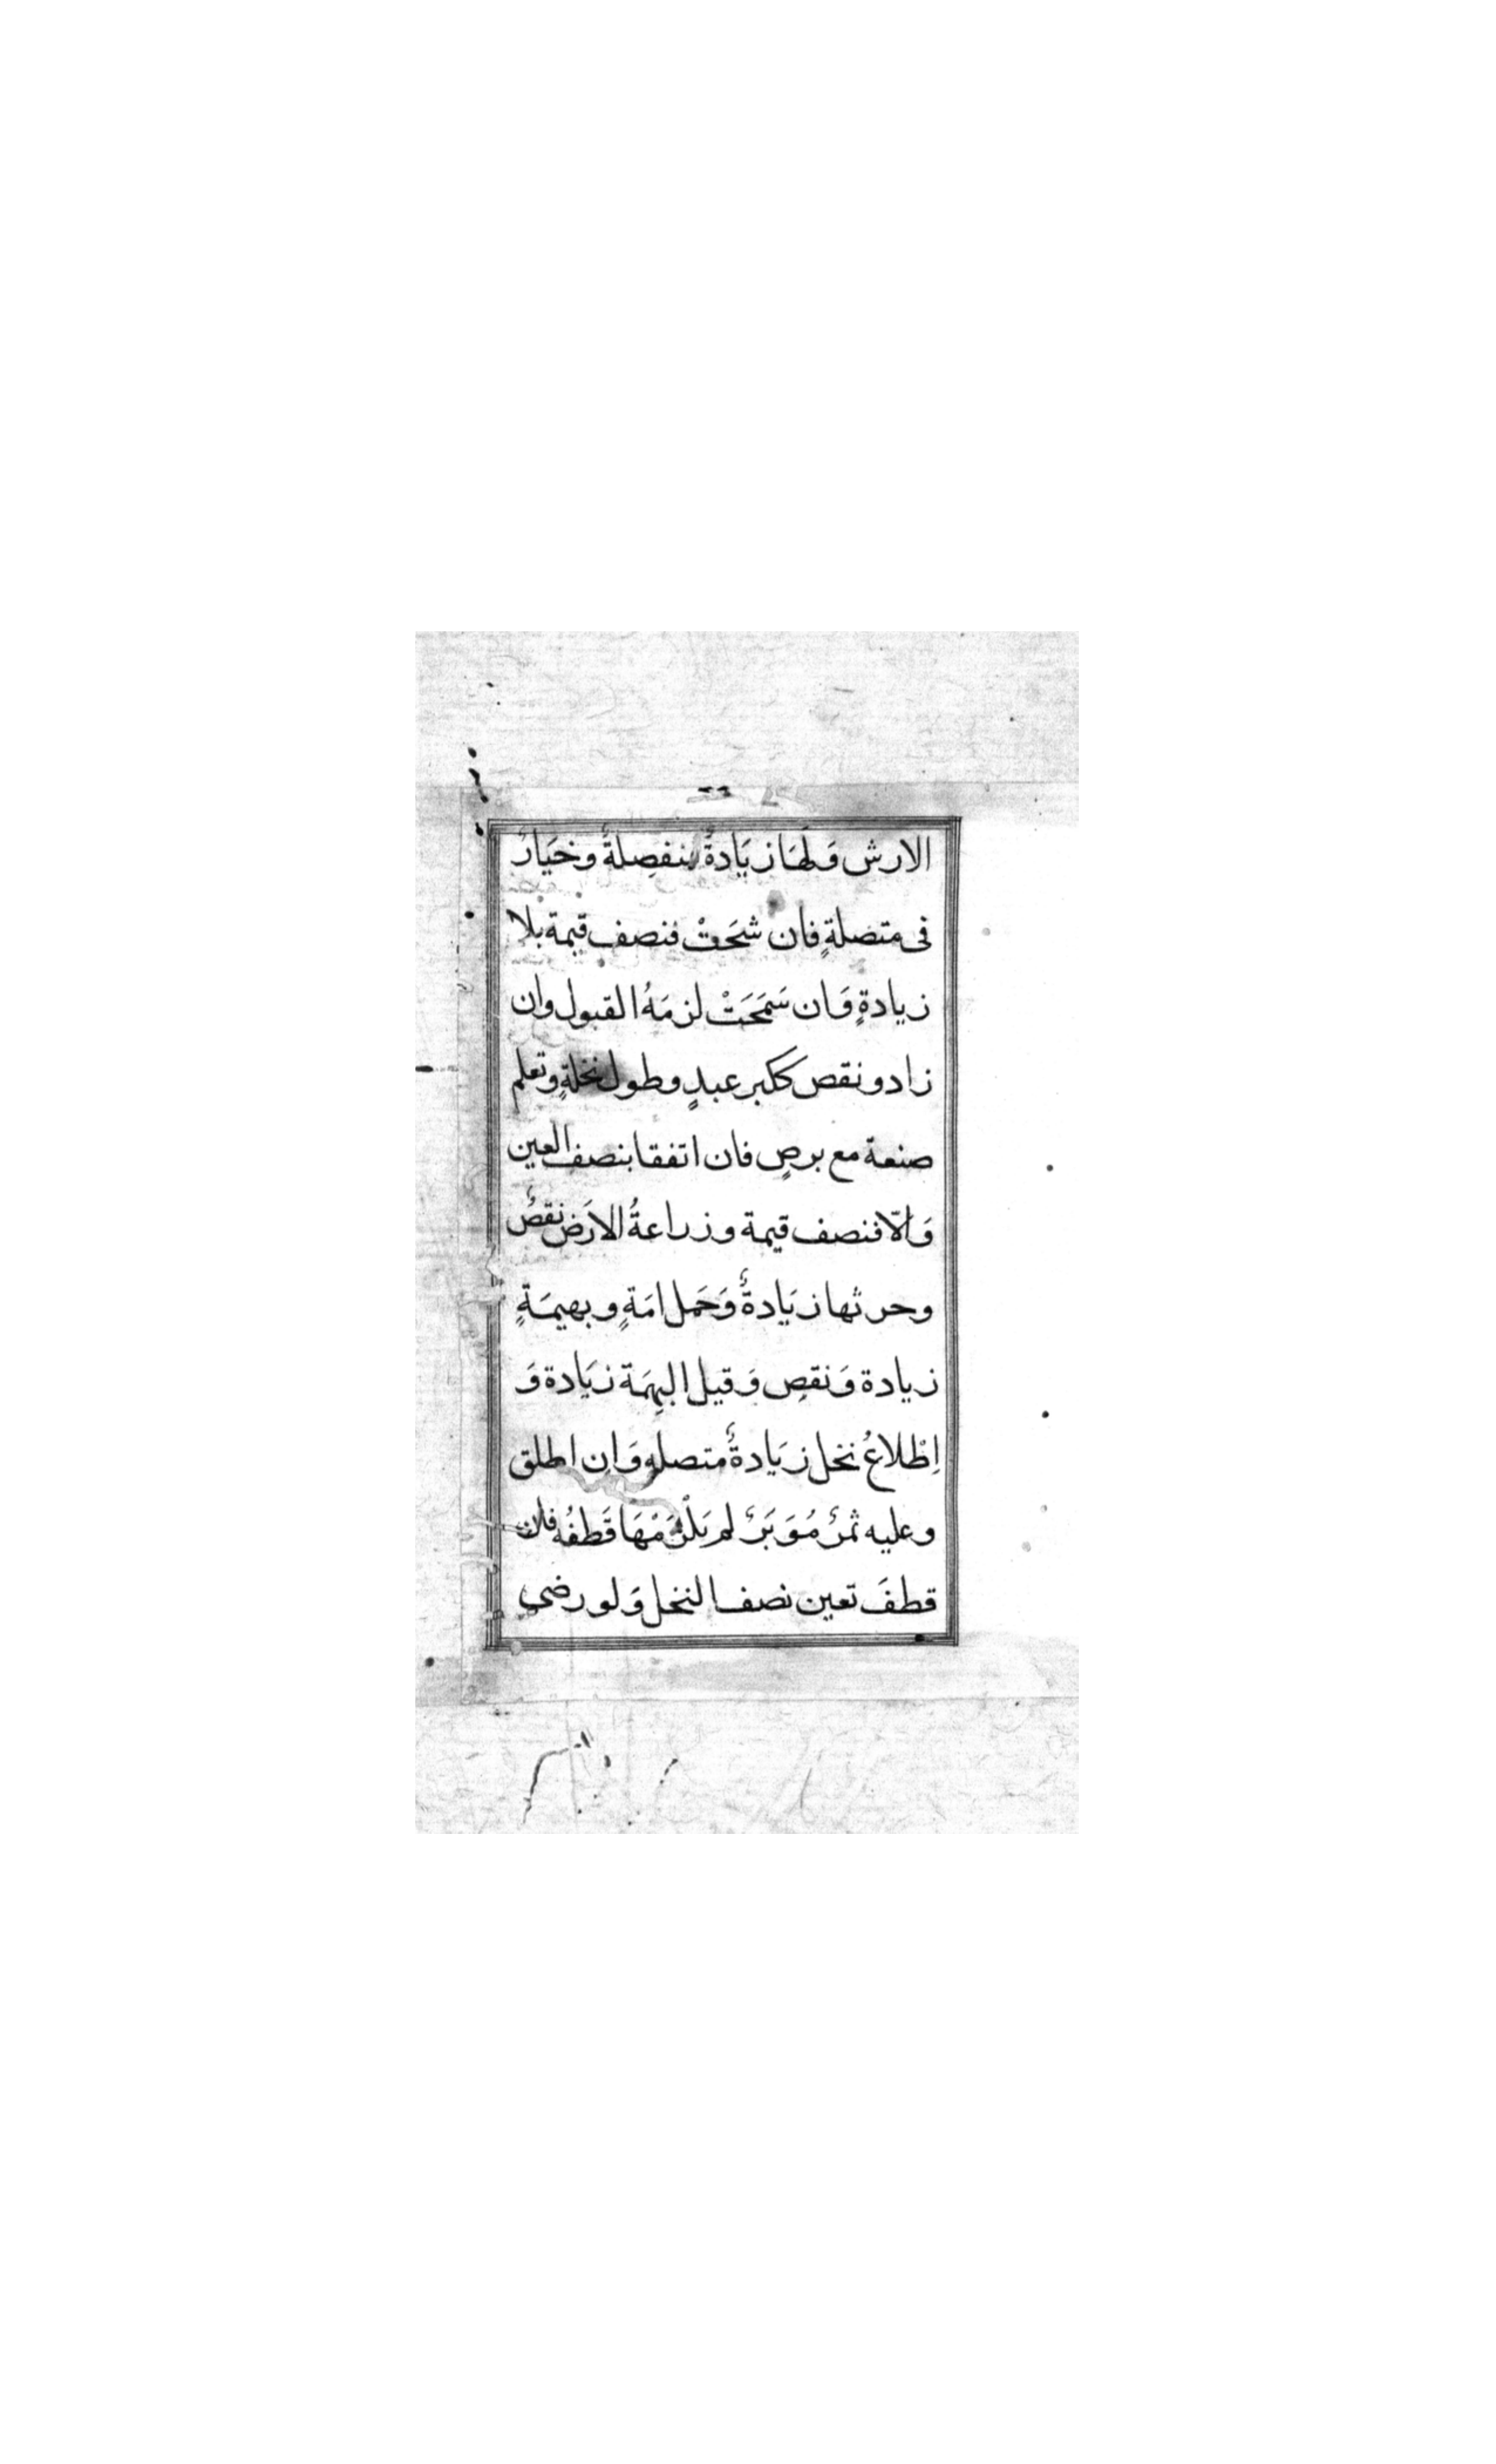 الارش وَلَهَا زيَادةٌ منفصِلةٌ وخيَارٌ
فى متصلةٍ فان شحَتْ فنصف قيمة بلا
زيادةٍ وَان سَمَحَتْ لزمَهُ القبول وان
زاد ونقص ككبر عبدٍ وطول نخلةٍ وتعلم
صنعة مع برصٍ فان اتفقا بنصف العين
وَالّا فنصف قيمة وزراعةُ الارَض نقصٌ
وحرثها زيَادةٌ وَحَمل امَةٍ وبهيمَةٍ
زيادة وَنقصِ وَقيل البهِمَة زيَادة وَ
اِطْلاعُ نخل زيَادةٌ متصله وَان اطلق
وعليه ثمرٌ مُوَبَرٌ لم يَلْزَمْهَا قَطفُه فان
قطفَ تعين نصف النخل وَلو رضى